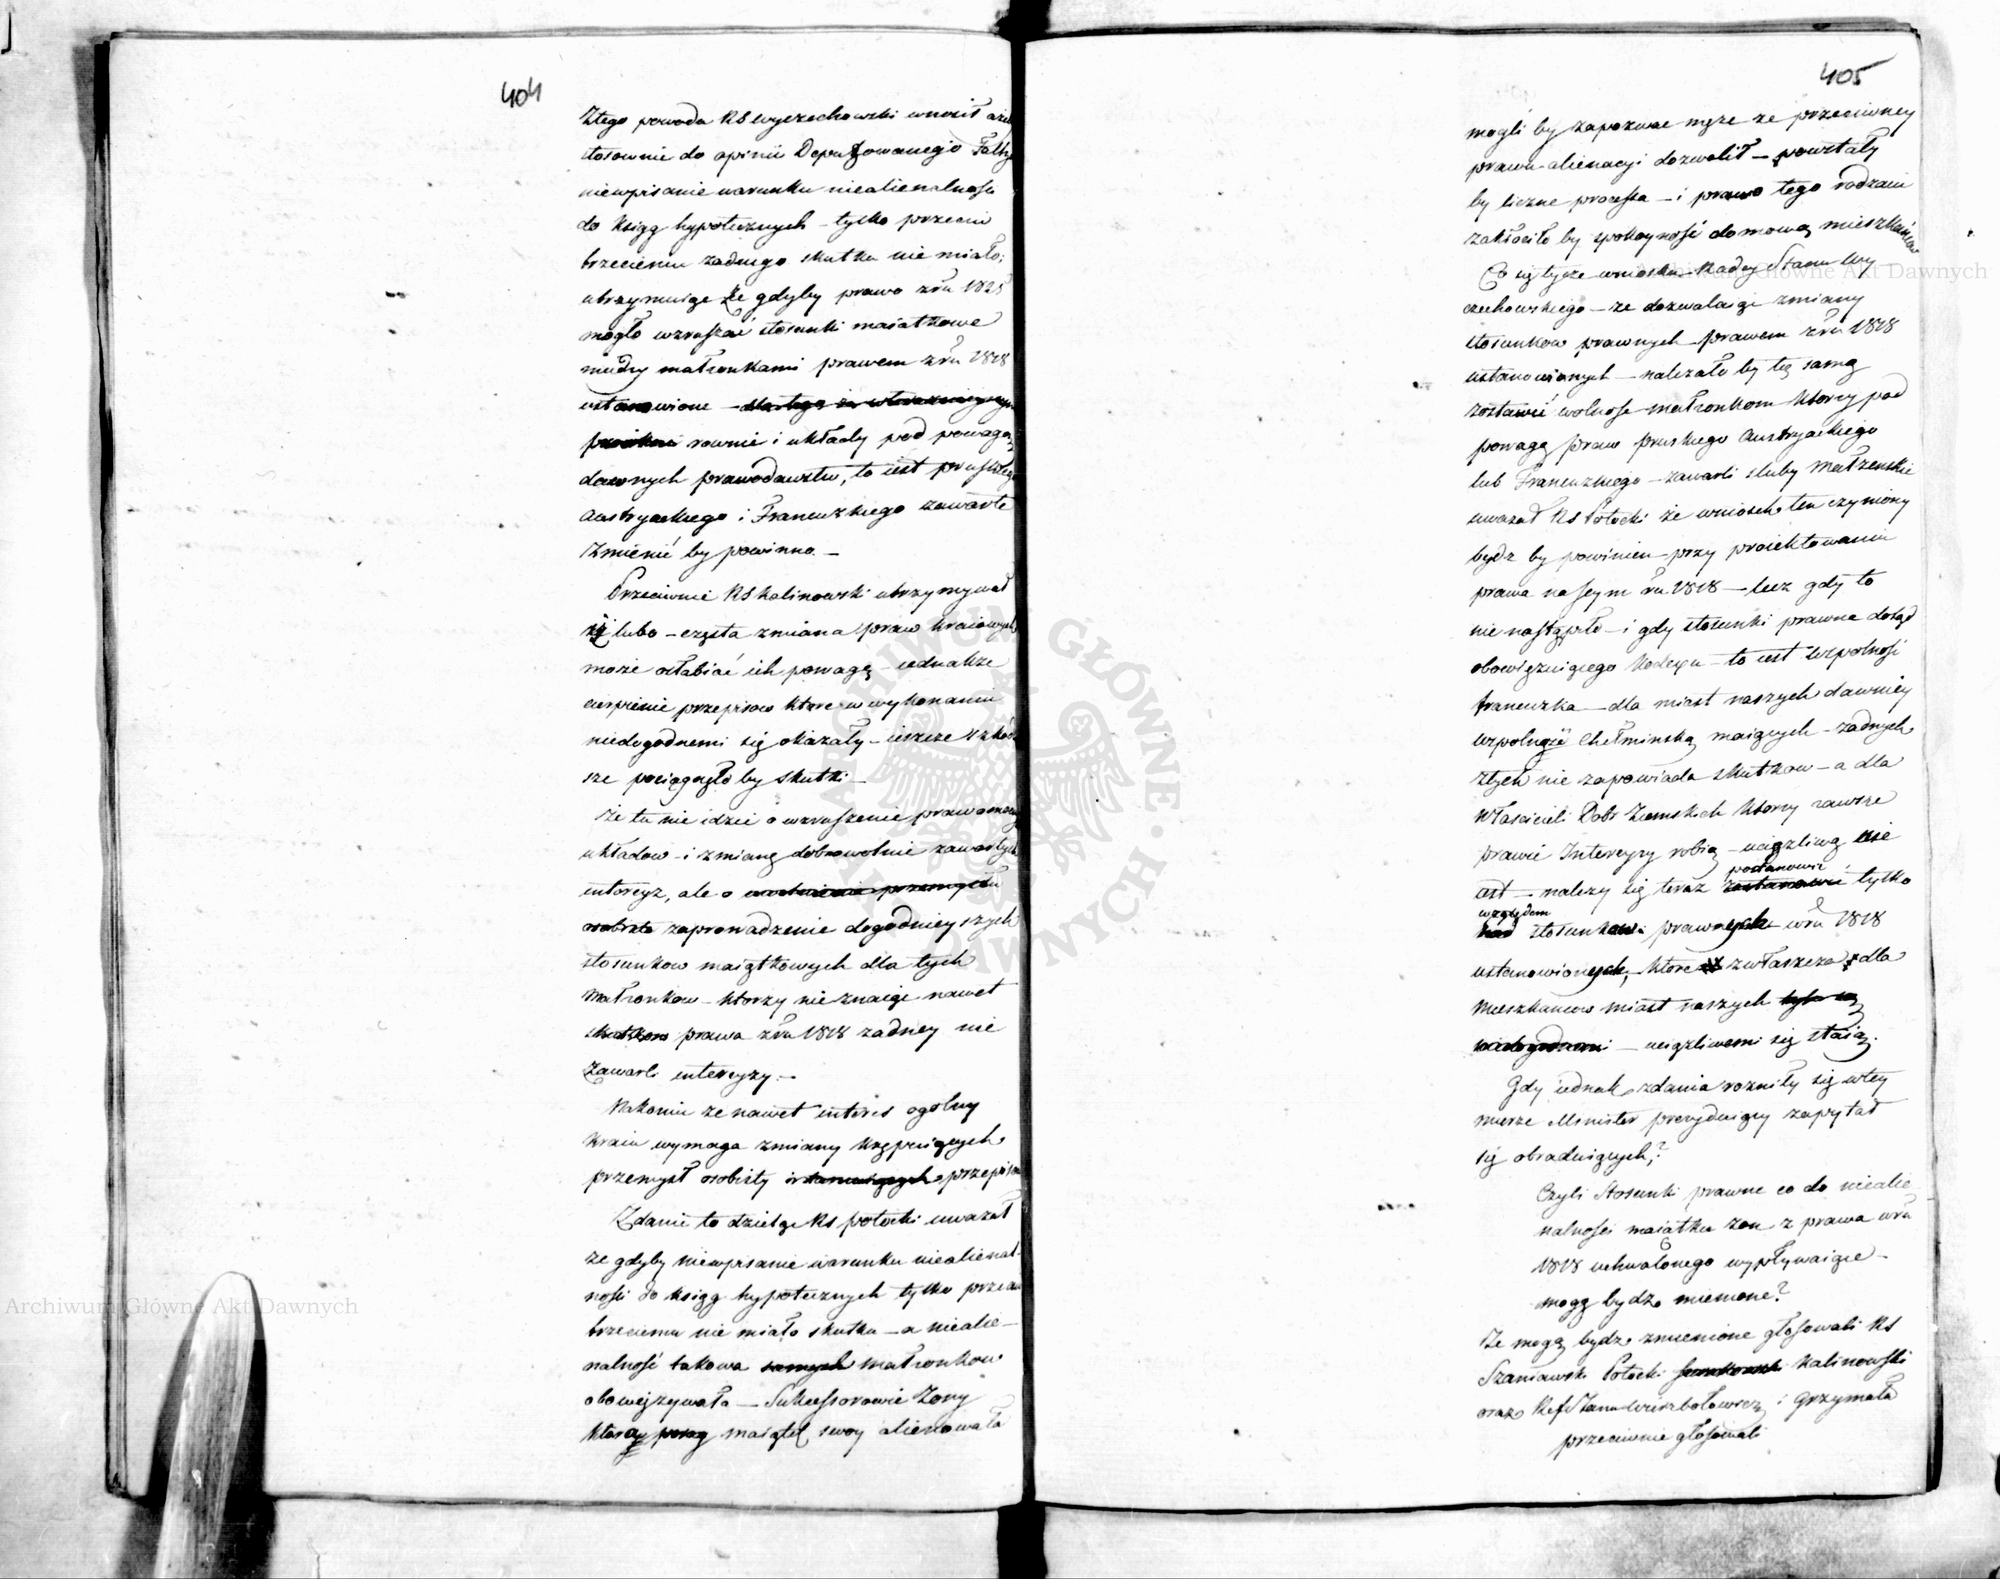 404
Ztego powodu RS Wyczechowski wnosił aże
stosownie do opinii Deputowanego Faltz
niewpisanie warunku niealienalności
do Ksiąg hypotecznych – tylko przeciw
trzeciemu żadnego skutku nie miało;
utrzymuiąc że gdyby prawo z ru 1825
mogło wzruszać stosunki maiątkowe
miedzy małżonkami prawem z ru 1818
ustanowione –
rownie i układy pod powagą
dawnych prawodawstw, to iest pruskieg
Austryackiego i Francuzkiego zawarte
Zmienić by powinno. –
Przeciwnie RS Kalinowski utrzymywał
iż lubo – częsta zmiana praw kraiowych
może osłabiać ich powagę – iednakże
cierpienie przepisow ktore w wykonaniu
niedogodnemi się okazały – ieszcze szkod
sze pociągnęło by skutki –
Że tu nie idzie o wzruszenie prawomocny
układow – i zmianę dobrowolnie zawartych
intercyz, ale o
zaprowadzenie dogodnieyszych
stosunkow maiątkowych dla tych
Małżonkow – ktorzy nie znaiąc nawet
skutkow prawa z ru 1818 żadney nie
Zawarli intercyzy. –
Nakoniec ze nawet interes ogolny
Kraiu wymaga zmiany krępuiących
przemysł osobisty przepisow
Zdanie to dzieląc RS Potocki uważał
że gdyby niewpisanie warunku niealienal-
ności do ksiąg hypotecznych tylko przeciw
trzeciemu nie miało skutku – a niealie-
nalność takowa samych małżonkow
obowięzywała – Sukcessorowie Żony
ktora maiątek swoy alienowała
405
mogli by zapozwac męże ze przeciwney
prawu alienacyi dozwolił – powstały
by liczne processa – i prawo tego rodzaiu
zakłociło by spokoyność domową mieszkańcow
Co się tycze wniosku Radcy Stanu Wy
czechowskiego – ze dozwalaiąc zmiany
stosunkow prawnych prawem z ru 1818
ustanowionych – należało by tę samą
zostawić wolność małżonkom ktorzy pod
powagą praw pruskiego Austryackiego
lub Francuzkiego – zawarli sluby Małżenskie
uważał RS Potocki że wniosek ten czyniony
bydz by powinien – przy proiektowaniu
prawa na Seym ru 1818 – lecz gdy to
nie nastąpiło – i gdy stosunki prawne dotąd
obowięzuiącego kodexu – to iest wspolność
francuzka – dla miast naszych dawniey
wspolność Chełminską maiących – żadnych
złych nie zapowiada skutkow – a dla
Właścicieli Dobr Ziemskich ktorzy zawsze
prawie Intercyzy robią – uciążliwą nie
iest – należy się teraz zastanowić tylko
postanowić
względem
nad stosunkow prawnych w ru 1818
ustanowionych, ktore zwłaszcza dla
Mieszkancow miast naszych
– uciążliwemi się staią.
Gdy iednak zdania rożniły się w tey
mierze Minister prezyduiący zapytał
się obraduiących;?
Czyli Stosunki prawne co do niealie
nalności maiątku żon z prawa w ru
1818 uchwalonego wypływaiące –
mogą bydz zmienione?
Że mogą bydz zmienione głosowali RS
Szaniawski Potocki Kalinowski
oraz Ref Stanu Wierzbołowicz i Grzymała
przeciwnie głosowali
Archiwum Główne Akt Dawnych
Archiwum Główne Akt Dawnych
ARCHIWUM GŁÓWNE AKT DAWNYCH